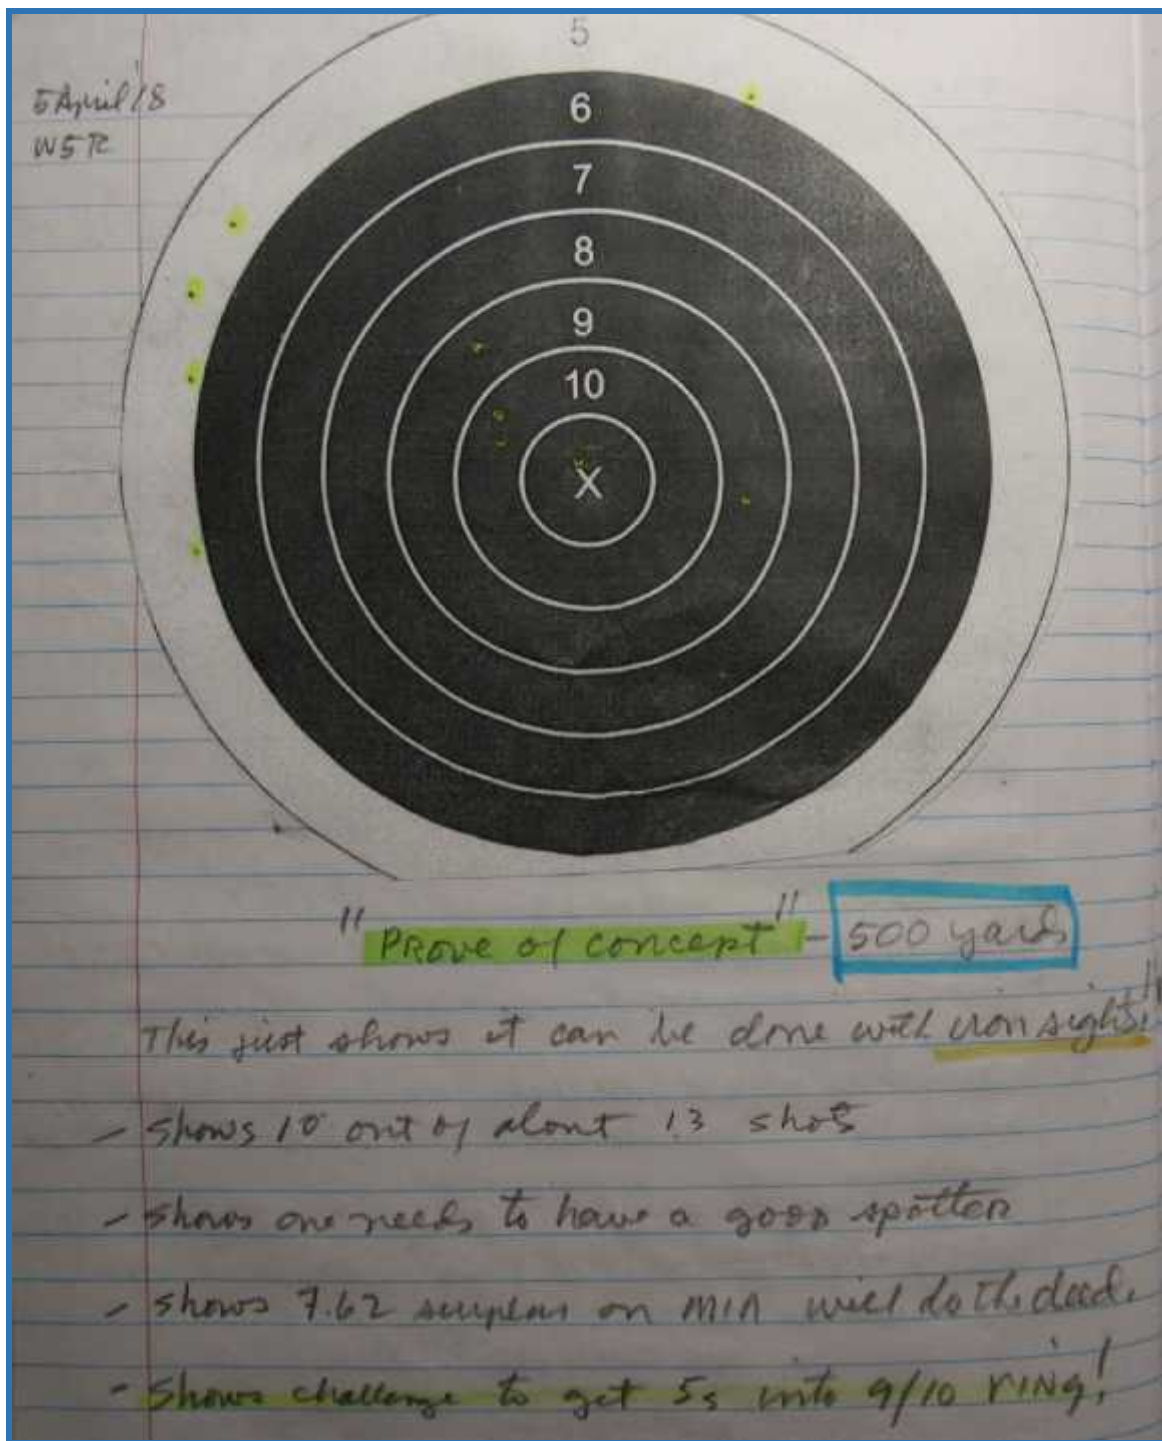 5
5 April 18
WSR
6
7
8
9
10
X
"Prove of concept" - 500 yards
This just shows it can be done with iron sights!"
- Shows 10 out of about 13 shots
- Shows one needs to have a good spotter
- Shows 7.62 surplus on M1A will do the deed.
- Shows challenge to get 5s into 9/10 ring!